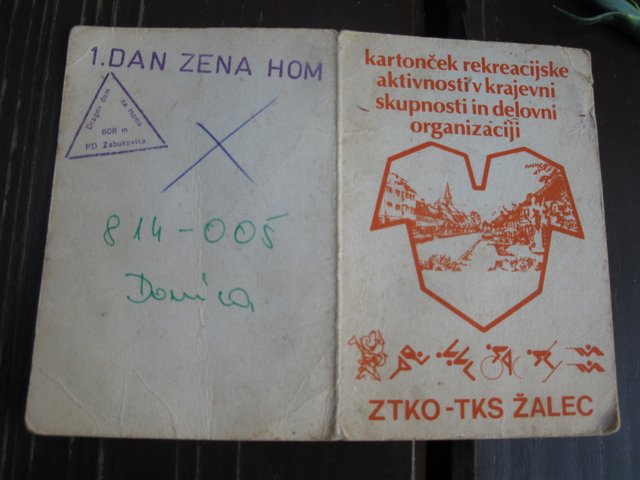 1. DAN ZENA HOM
Dragov dom
na Homu
608 m
PD Zabukovica
814-005
Danica
kartonček rekreacijske
aktivnosti v krajevni
skupnosti in delovni
organizaciji
ZTKO-TKS ŽALEC